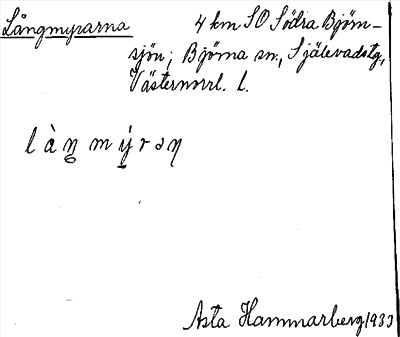 Långmyrarna 4 km SO Södra Bjöm-
sjön; Björna sn., Själevadstg.,
Västernorrl. l.
l à ŋ m ý r ə ŋ
Asta Hammarberg 1933